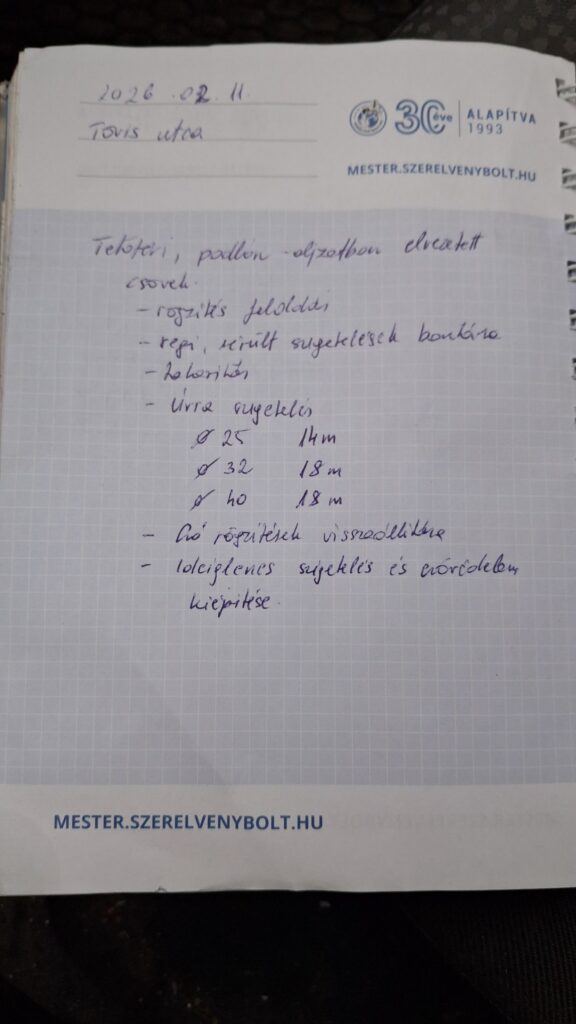 2026.02.11.
Tövis utca
30 éve
ALAPÍTVA
1993
MESTER.SZERELVENYBOLT.HU
Tetőtéri, padlón aljzatban elvezetett
csövek.
- rögzítés feloldás
- régi, sérült szigetelések bontása
- Takarítás
- Újra szigetelés
ø 25 14 m
ø 32 18 m
ø 40 18 m
- Cső rögzítések visszaállítása
- Ideiglenes szigetelés és csővédelem
kiépítése.
MESTER.SZERELVENYBOLT.HU